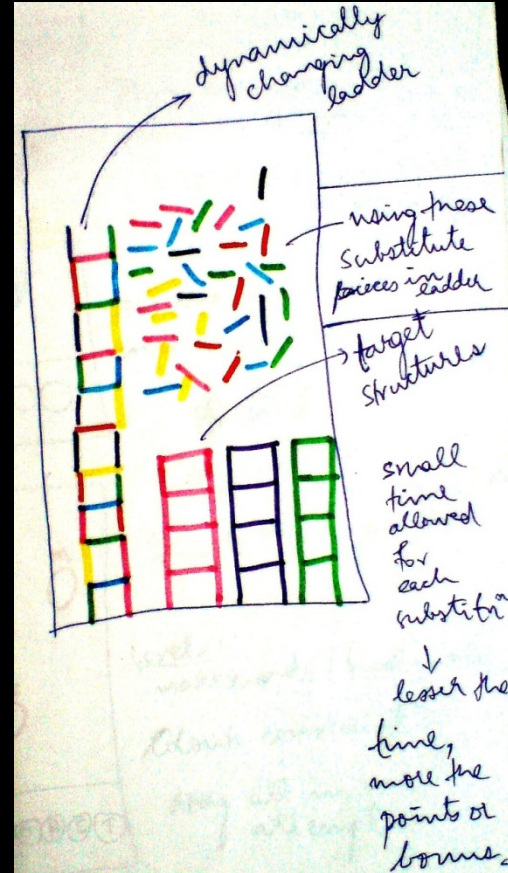 dynamically
changing
ladder
using these
substitute
pieces in ladder
target
structures
small
time
allowed
for
each
substitⁿ
lesser the
time,
more the
points or
bonus.